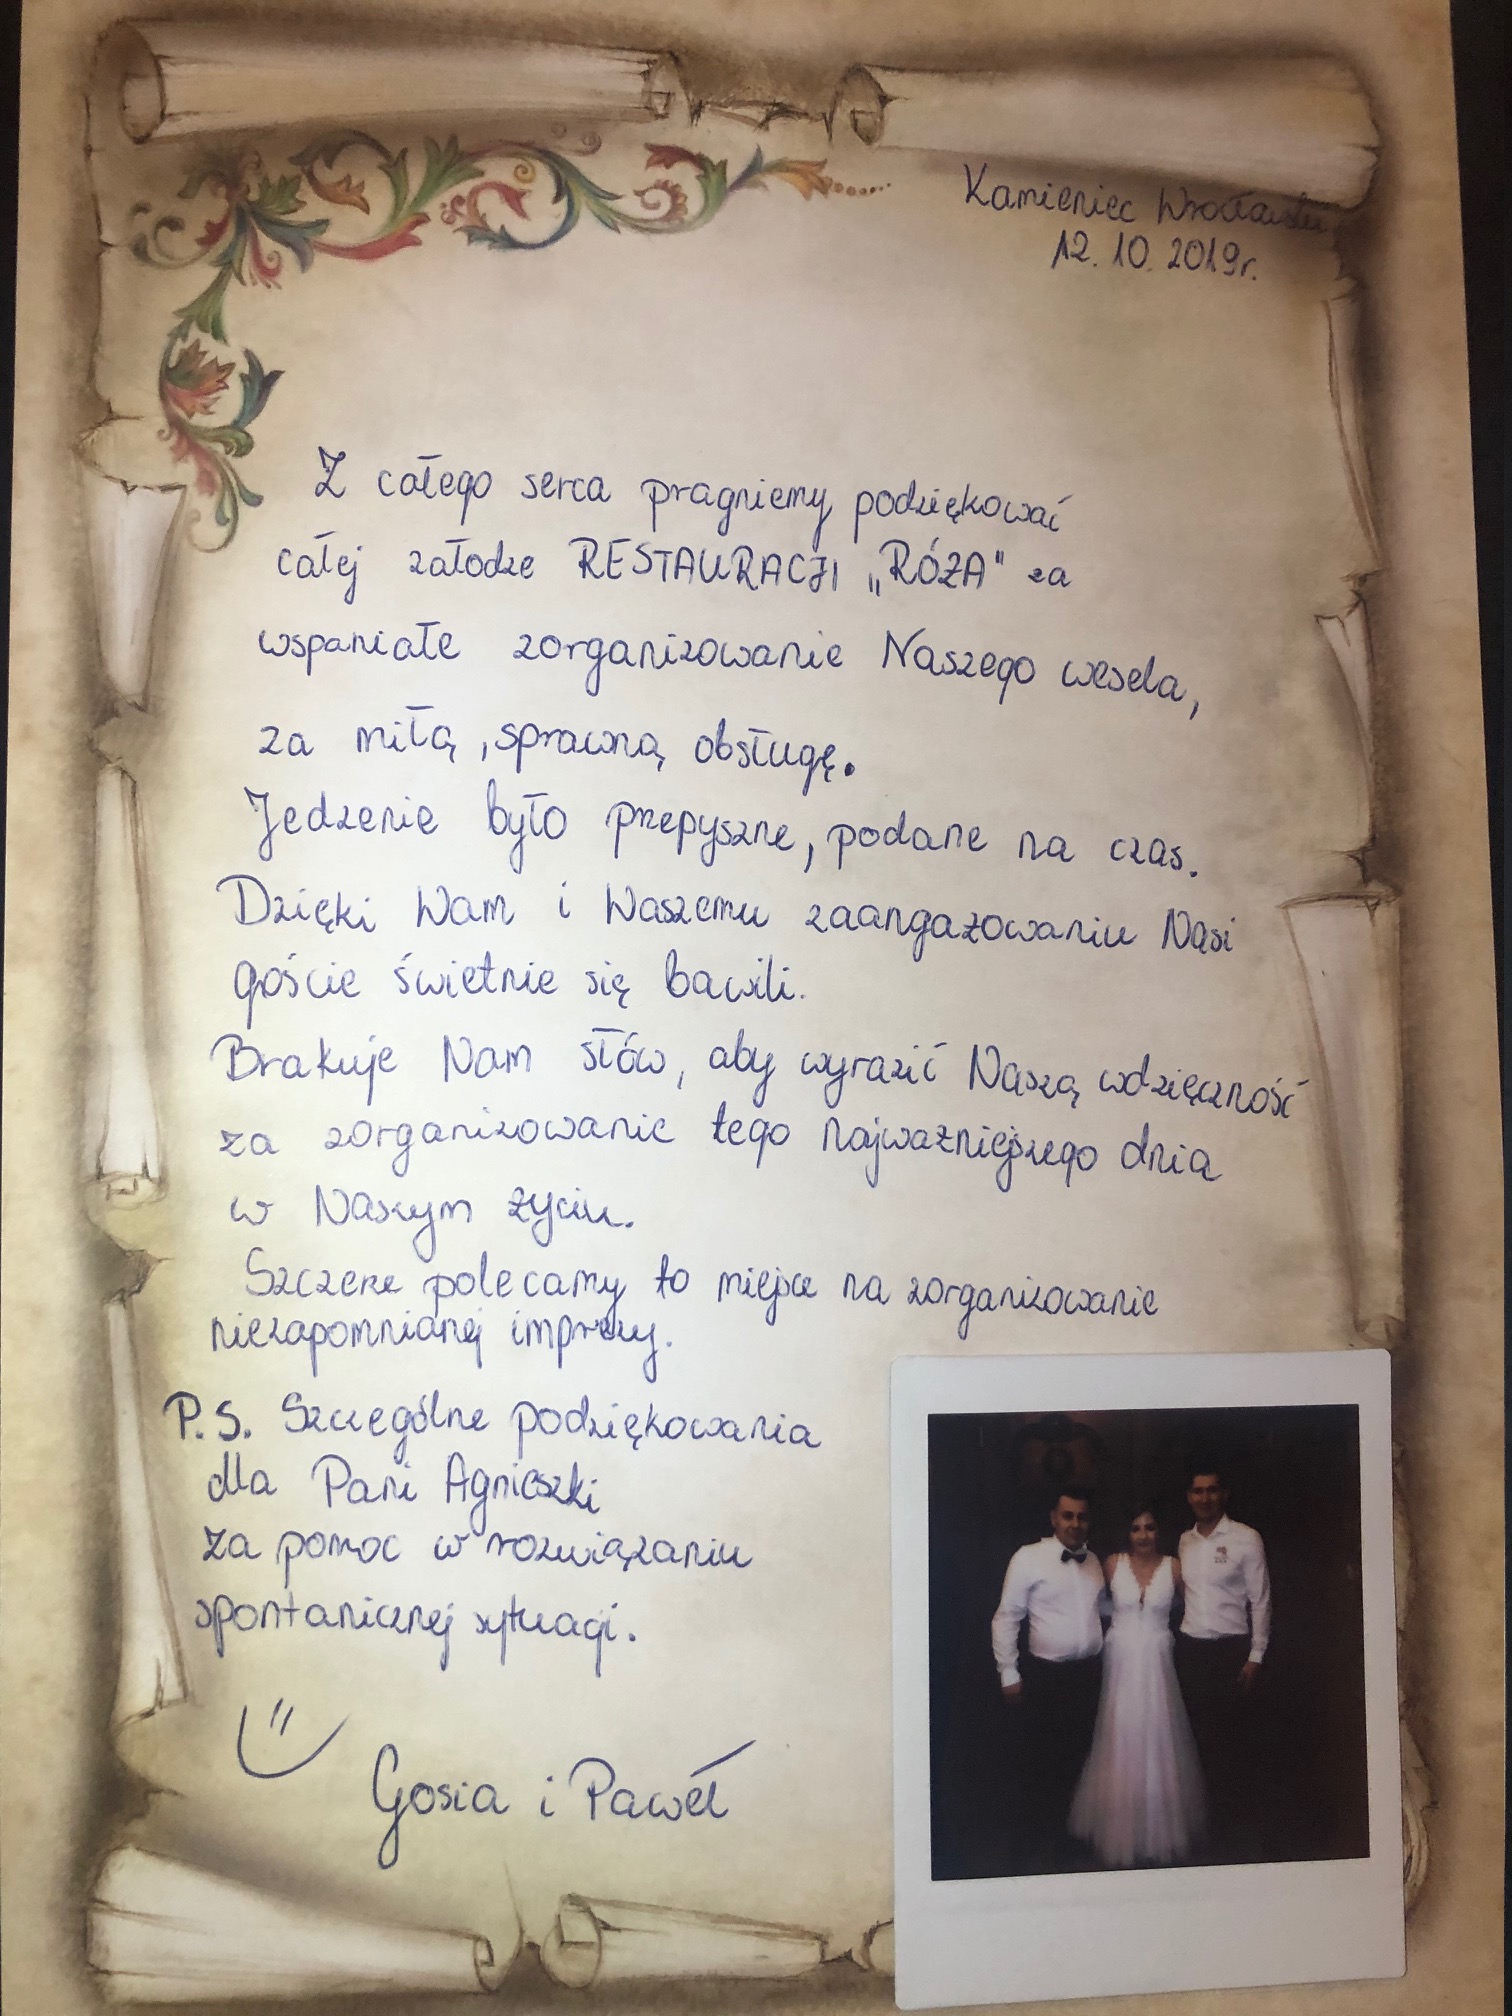 Kamieniec Wrocławski
12.10.2019r.
Z całego serca pragniemy podziękować
całej załodze RESTAURACJI „RÓŻA" za
wspaniałe zorganizowanie Naszego wesela,
za miłą, sprawną obsługę.
Jedzenie było przepyszne, podane na czas.
Dzięki Wam i Waszemu zaangażowaniu Nasi
goście świetnie się bawili.
Brakuje Nam słów, aby wyrazić Naszą wdzięczność
za zorganizowanie tego najważniejszego dnia
w Naszym życiu.
Szczerze polecamy to miejsce na zorganizowanie
niezapomnianej imprezy.
P.S. Szczególne podziękowania
dla Pani Agnieszki
za pomoc w rozwiązaniu
spontanicznej sytuacji.
Gosia i Paweł